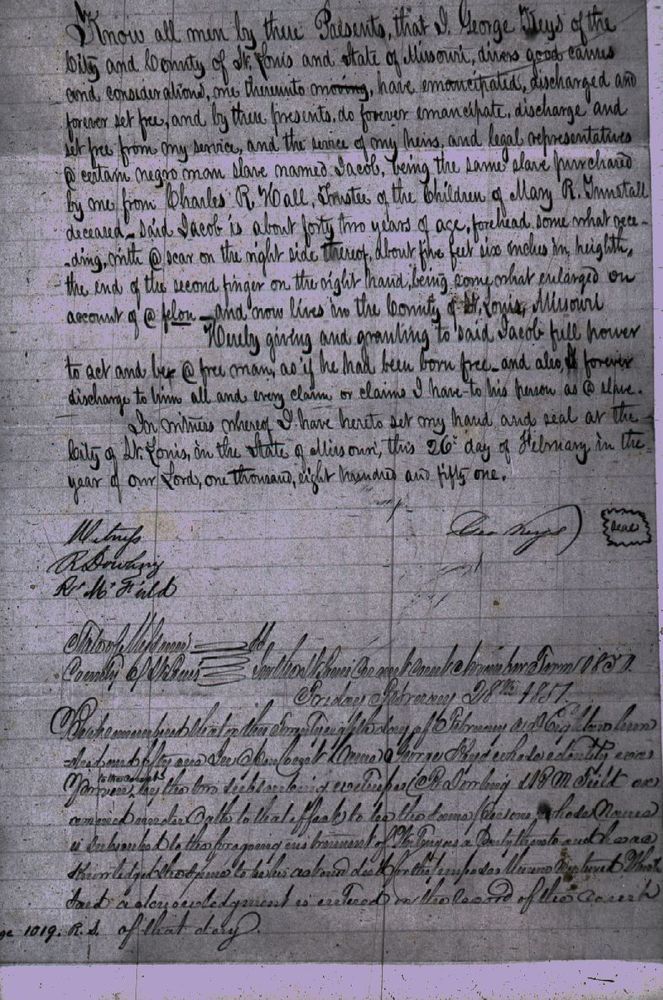 Know all men by these Presents, that I George Keys of the
City and County of St. Louis and State of Missouri, divers good causes
and considerations, me thereunto moving, have emancipated, discharged and
forever set free, and by these presents, do forever emancipate, discharge and
set free from my service, and the service of my heirs, and legal representatives
@ certain negro man slave named Jacob, being the same slave purchased
by me from Charles R. Hall, Trustee of the Children of Mary R. Tunstall
deceased - said Jacob is about forty two years of age, forehead some what rece-
-ding, with @ scar on the right side thereof, about five feet six inches in heighth,
the end of the second finger on the right hand, being some what enlarged on
account of @ felon - and now lives in the County of St. Louis, Missouri
Hereby giving and granting to said Jacob full power
to act and be @ free man, as if he had been born free - and also, forever
discharge to him all and every claim or claims I have to his person as @ slave.
In witness whereof I have hereto set my hand and seal at the
City of St. Louis, in the State of Missouri, this 26th day of February in the
year of our Lord, one thousand, eight hundred and fifty one.
Geo Keys Seal
Witness
R Dowling
R. M. Field
State of Missouri ss
County of St Louis In the St Louis Circuit Court November Term 1850.
Friday February 28th 1851
Be it remembered that on this Twenty eighth day of February A D Eighteen hun
-dred and fifty one In Open Court Came George Keys whose identity was
Proven to the Court by the two subscribing witnesses R Dowling & R M Field ex
amined under oath to that effect to be the same person whose name
is subscribed to the foregoing instrument of Writing as a Party thereto and he ac
knowledged the same to be his act and deed for the purposes therein mentioned Which
said acknowledgment is entered on the record of the court
1019. R. S. of that day.